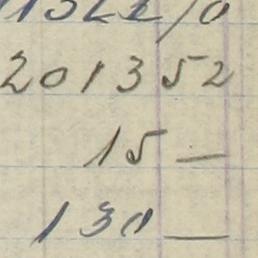 201352
15 —
130 —